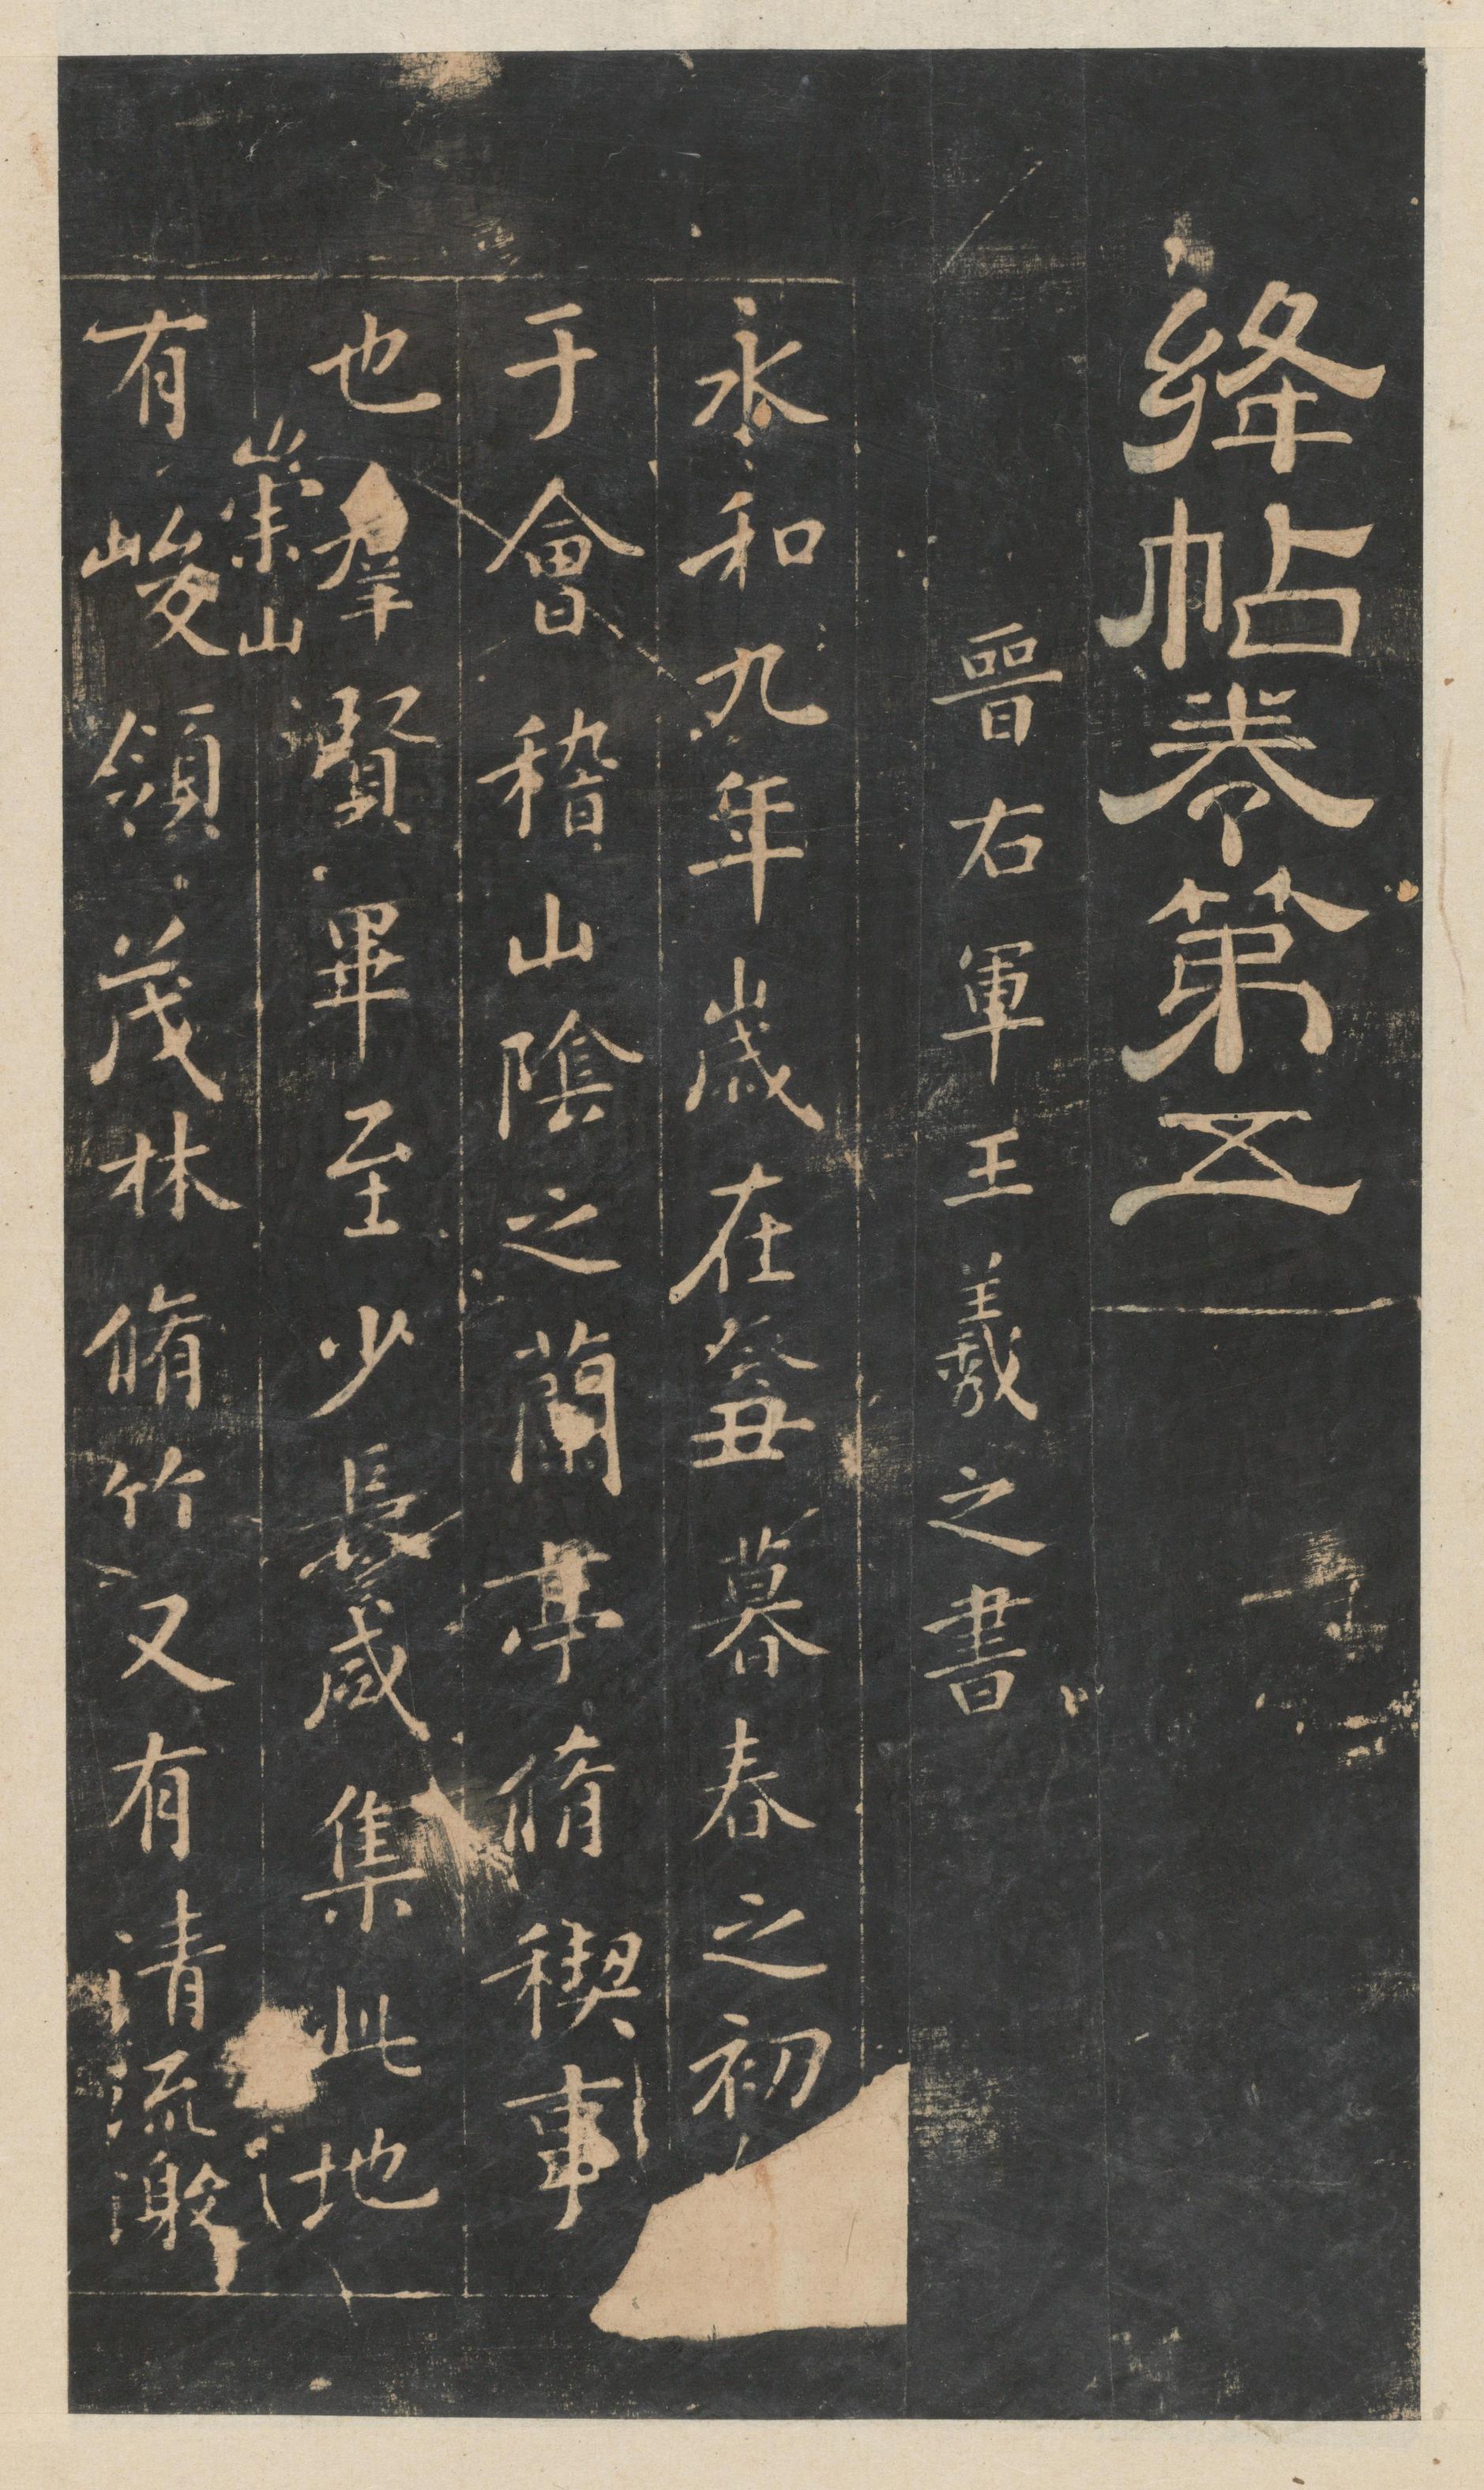 絳帖卷第五
晉右軍王羲之書
永和九年歲在癸丑暮春之初
于會稽山陰之蘭亭脩稧事
也羣賢畢至少長咸集此地
崇山
有峻領茂林脩竹又有清流激